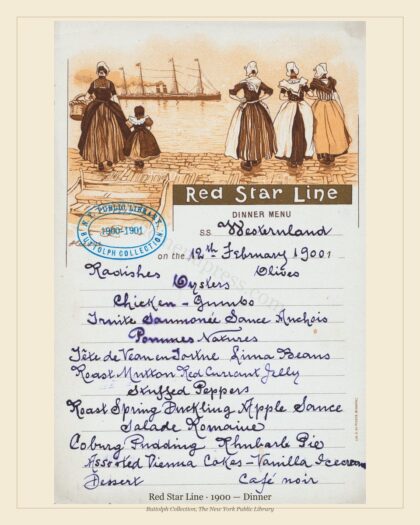 Red Star Line
DINNER MENU
N.Y. PUBLIC LIBRARY
1900-1901
BUTTOLPH COLLECTION
SS Westernland
on the 12th February 1901
Radishes Olives
Oysters
Chicken - Gumbo
Truite Saumonée Sauce Anchois
Pommes Natures
Tête de Veau en Tortue Lima Beans
Roast Mutton Red Currant Jelly
Stuffed Peppers
Roast Spring Duckling Apple Sauce
Salade Romaine
Coburg Pudding Rhubarb Pie
Assorted Vienna Cakes - Vanilla Icecream
Dessert Café noir
Red Star Line · 1900 — Dinner
Buttolph Collection, The New York Public Library